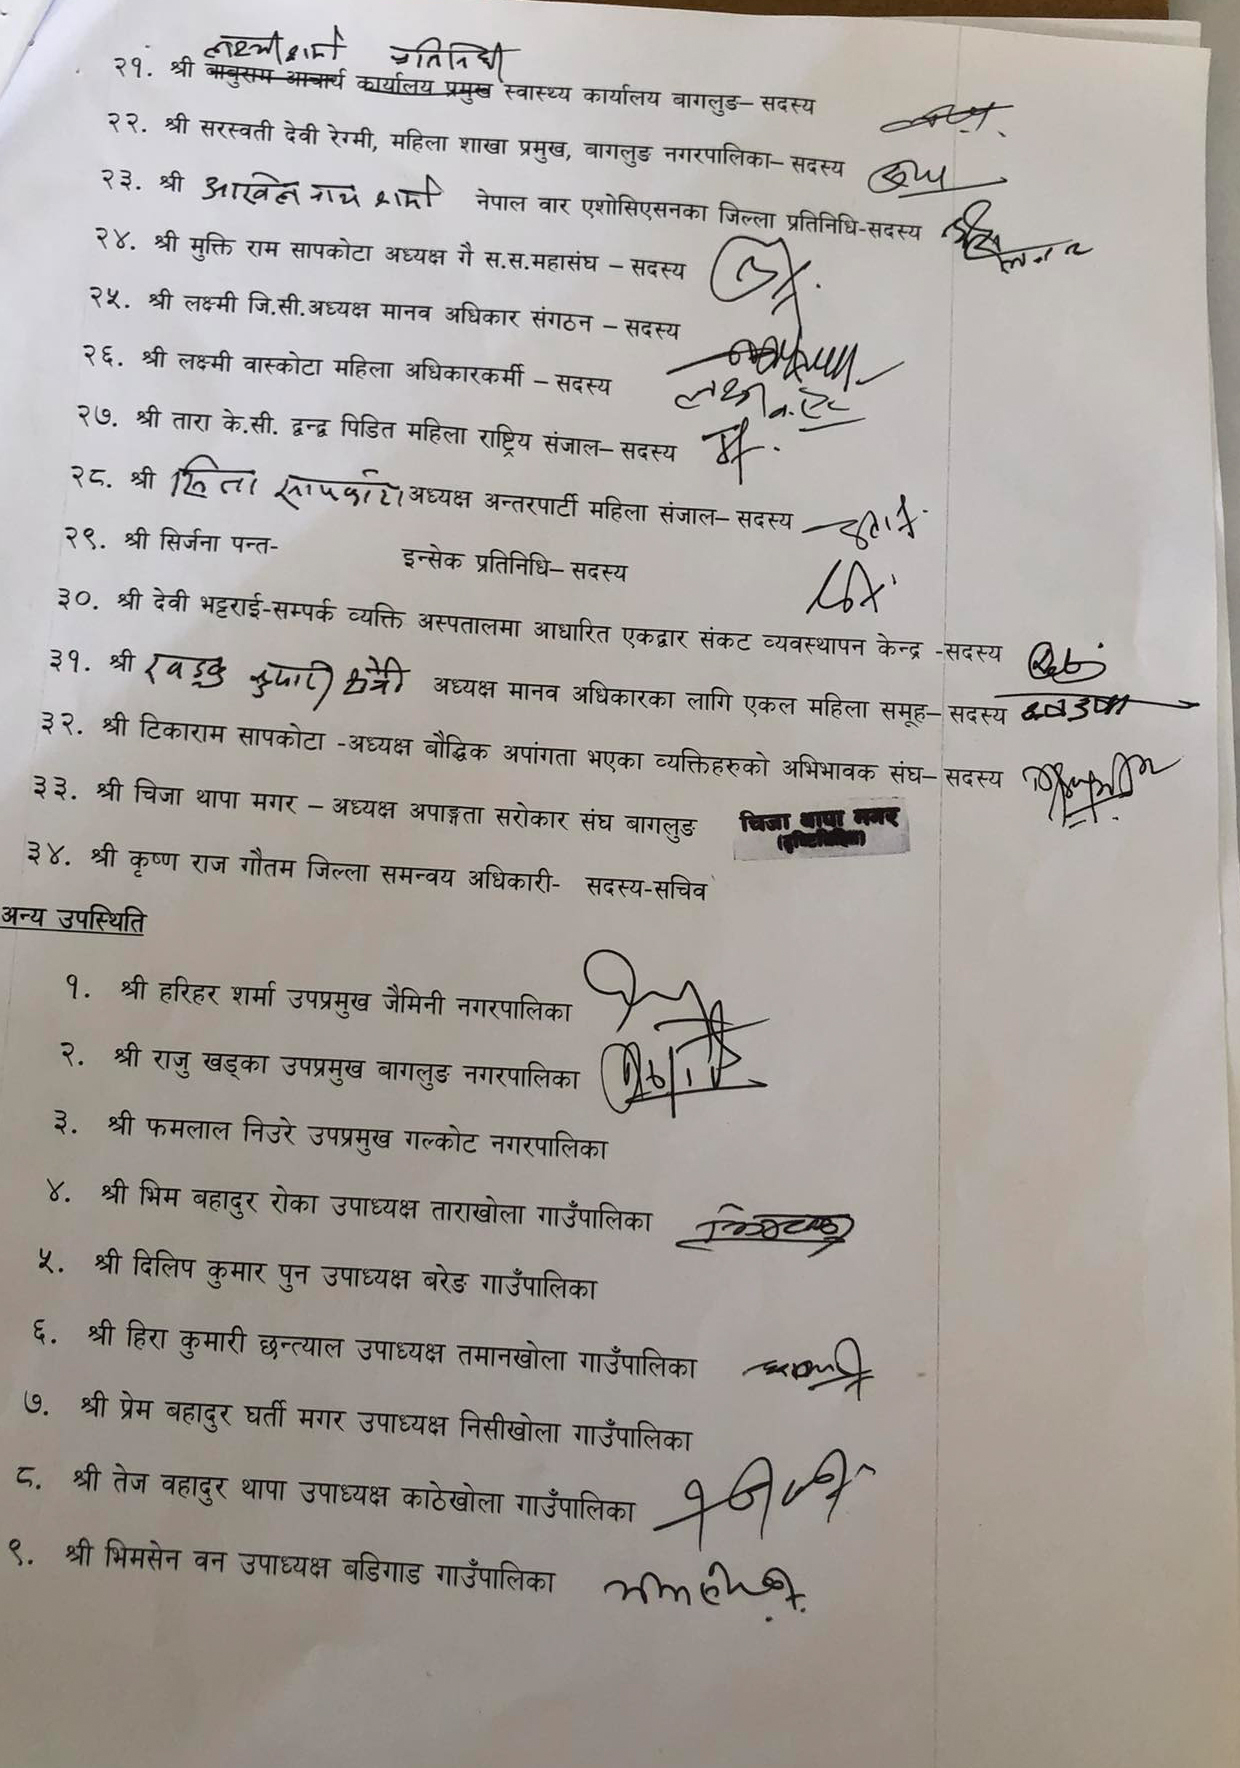 लक्ष्मी शर्मा प्रतिनिधी
२१. श्री बाबुराम आचार्य कार्यालय प्रमुख स्वास्थ्य कार्यालय बागलुङ– सदस्य
२२. श्री सरस्वती देवी रेग्मी, महिला शाखा प्रमुख, बागलुङ नगरपालिका– सदस्य
२३. श्री शर्मा नेपाल वार एशोसिएसनका जिल्ला प्रतिनिधि-सदस्य
२४. श्री मुक्ति राम सापकोटा अध्यक्ष गै स.स.महासंघ – सदस्य
२५. श्री लक्ष्मी जि.सी.अध्यक्ष मानव अधिकार संगठन – सदस्य
२६. श्री लक्ष्मी वास्कोटा महिला अधिकारकर्मी – सदस्य
२७. श्री तारा के.सी. द्वन्द्व पिडित महिला राष्ट्रिय संजाल– सदस्य
२८. श्री सापकोटा अध्यक्ष अन्तरपार्टी महिला संजाल– सदस्य
२९. श्री सिर्जना पन्त- इन्सेक प्रतिनिधि– सदस्य
३०. श्री देवी भट्टराई-सम्पर्क व्यक्ति अस्पतालमा आधारित एकद्वार संकट व्यवस्थापन केन्द्र -सदस्य
३१. श्री खड्ग कुमारी क्षेत्री अध्यक्ष मानव अधिकारका लागि एकल महिला समूह– सदस्य
३२. श्री टिकाराम सापकोटा -अध्यक्ष बौद्धिक अपांगता भएका व्यक्तिहरुको अभिभावक संघ– सदस्य
३३. श्री चिजा थापा मगर – अध्यक्ष अपाङ्गता सरोकार संघ बागलुङ चिजा थापा मगर
(दृष्टिविहिन)
३४. श्री कृष्ण राज गौतम जिल्ला समन्वय अधिकारी- सदस्य-सचिव
अन्य उपस्थिति
१. श्री हरिहर शर्मा उपप्रमुख जैमिनी नगरपालिका
२. श्री राजु खड्का उपप्रमुख बागलुङ नगरपालिका
३. श्री फमलाल निउरे उपप्रमुख गल्कोट नगरपालिका
४. श्री भिम बहादुर रोका उपाध्यक्ष ताराखोला गाउँपालिका
५. श्री दिलिप कुमार पुन उपाध्यक्ष बरेङ गाउँपालिका
६. श्री हिरा कुमारी छन्त्याल उपाध्यक्ष तमानखोला गाउँपालिका
७. श्री प्रेम बहादुर घर्ती मगर उपाध्यक्ष निसीखोला गाउँपालिका
८. श्री तेज वहादुर थापा उपाध्यक्ष काठेखोला गाउँपालिका
९. श्री भिमसेन वन उपाध्यक्ष बडिगाड गाउँपालिका